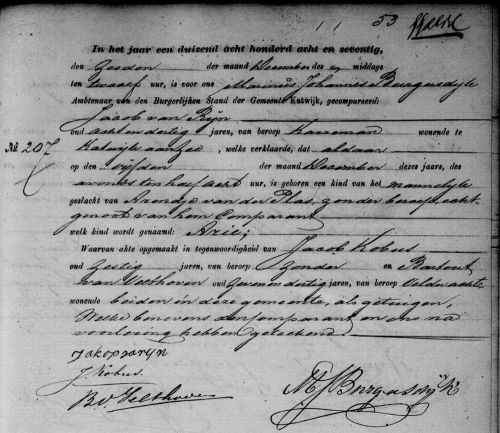 53
In het jaar een duizend acht honderd acht en zeventig,
den Zesden der maand December des middags
ten twaalf uur, is voor ons Marinus Johannes Burgersdijk
Ambtenaar van den Burgerlijken Stand der Gemeente Katwijk, gecompareerd:
Jacob van Rijn
oud acht en dertig jaren, van beroep Karreman wonende te
Katwijk aan Zee, welke verklaarde, dat aldaar
No 207
op den vijfden der maand December dezes jaars, des
avonds ten half acht uur, is geboren een kind van het mannelijke
geslacht van Arendje van der Plas, zonder beroep, echt-
genoot van hem Comparant
welk kind wordt genaamd: Arie;
Waarvan akte opgemaakt in tegenwoordigheid van Jacob Kobus
oud Zestig jaren, van beroep Zonder en
van Velthoven oud Zeven en dertig jaren, van beroep Veldwachter
wonende beiden in deze gemeente, als getuigen,
Welke benevens den Comparant en ons na
voorlezing hebben geteekend.
Jakop varijn
J. Kobus.
B v Velthoven
MJBurgersdijk